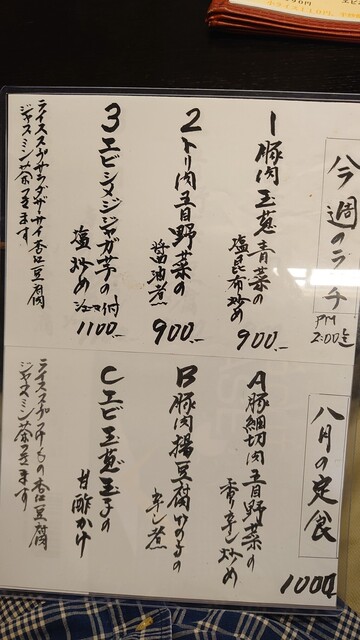 今週のランチ
PM
2:00迄
1 豚肉玉葱青菜の
塩昆布炒め
900.-
2 トリ肉五目野菜の
醤油煮
900.-
3 エビシメジジャガ芋の
塩炒め
1100.-
ライススープサラダザーサイ杏仁豆腐
ジャスミン茶つきます
八月の定食
1000
A 豚細切肉五目野菜の
香り辛シ炒め
B 豚肉揚豆腐竹の子の
辛シ煮
C エビ玉葱玉子の
甘酢かけ
ライススープつけもの杏仁豆腐
ジャスミン茶つきます